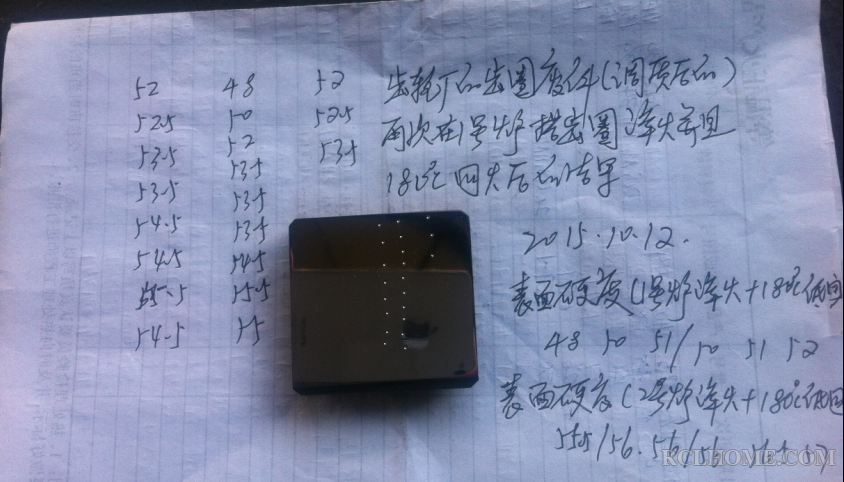 52 48 52
52.5 50 52.5
53.5 52 53.5
53.5 53.5
54.5 53.5
54.5 53.5
55.5 54.5
54.5 55.5
55
齿轮厂的齿圈废料(调质后的)
再次在1号炉搭齿圈淬火并且
180℃回火后的结果
2015.10.12.
表面硬度(1号炉淬火+180℃低回
48 50 51/50 51 52
表面硬度(2号炉淬火+180℃低回
55.5/56.56/56
RCLHOME.COM